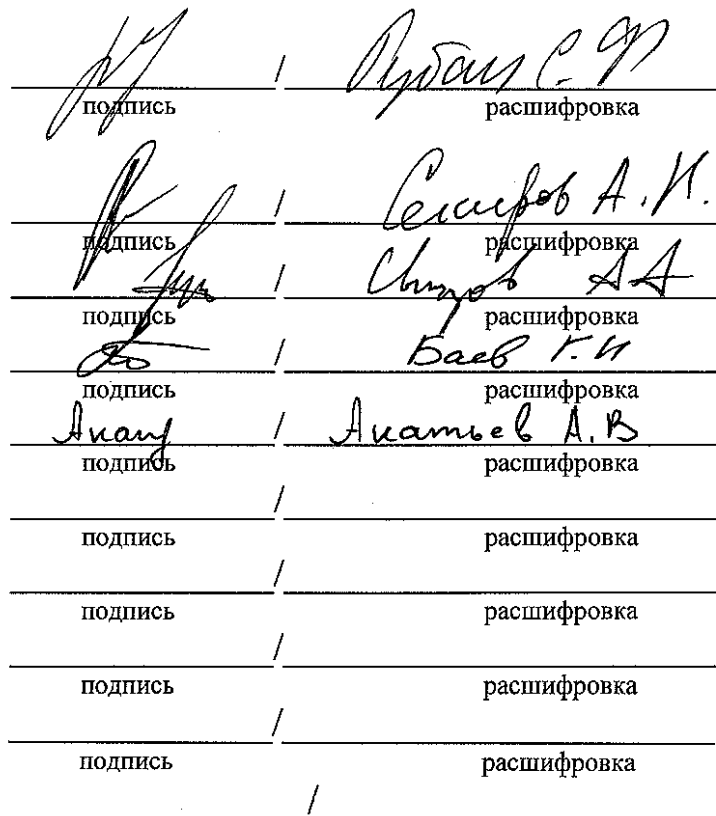 / С. Ф
подпись расшифровка
/ А. Н.
подпись расшифровка
/ АА
подпись расшифровка
/ Баев Г. И
подпись расшифровка
/ Акатьев А. В
подпись расшифровка
/
подпись расшифровка
/
подпись расшифровка
/
подпись расшифровка
/
подпись расшифровка
/